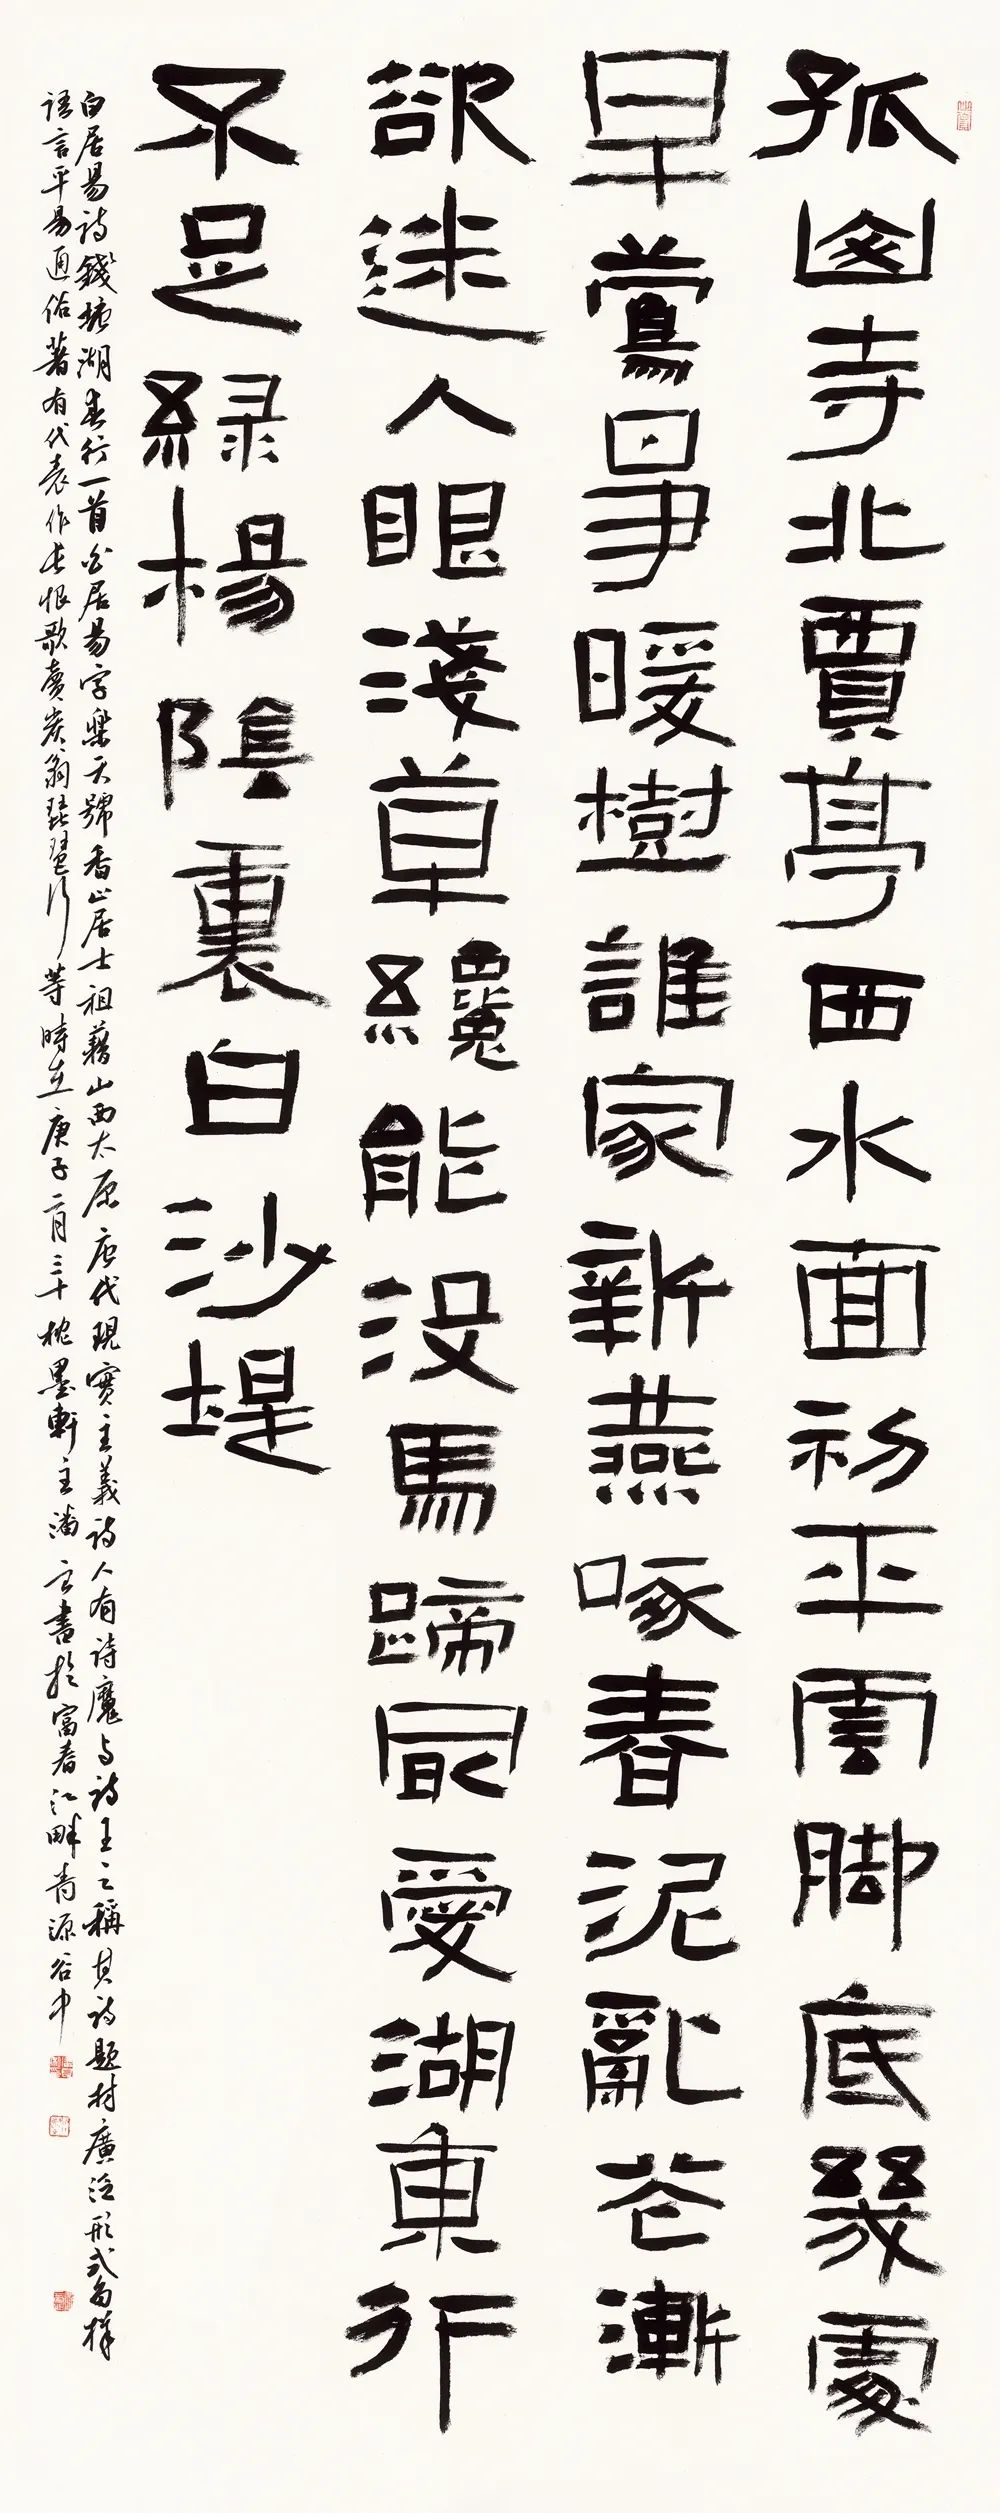 孤山寺北賈亭西水面初平雲脚底幾處
早鶯爭暖樹誰家新燕啄春泥亂花漸
欲迷人眼淺草纔能没馬蹄最愛湖東行
不足緑楊陰裏白沙堤
白居易詩錢塘湖春行一首白居易字樂天號香山居士祖藉山西太原唐代現實主義詩人有詩魔与詩王之稱其詩題材廣泛形式多樣
語言平易通俗著有代表作長恨歌賣炭翁琵琶行等時在庚子二月三十枕墨軒主潘書於富春江畔青源谷中